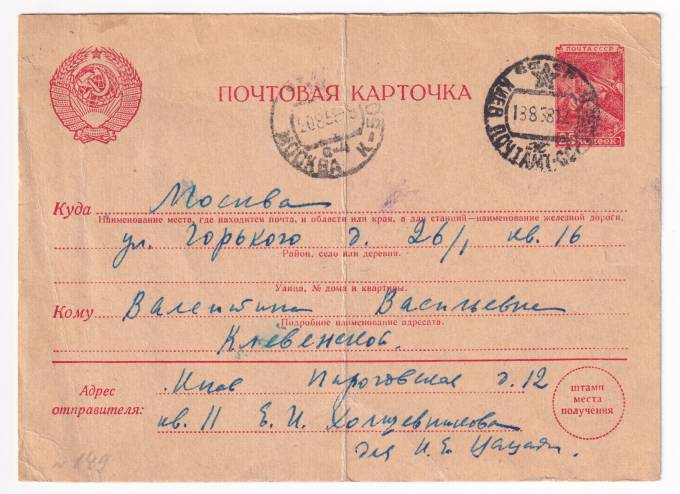 ПОЧТА СССР
ПОЧТОВАЯ КАРТОЧКА
18858
МОССКВА К-50
КИЕВ ПОЧТАМТ
25 КОПЕЕК
Куда Москва
Наименование места, где находится почта, и области или края, а для станций—наименование железной дороги.
ул. Горького д. 26/1, кв. 16
Район, село или деревня.
Улица, № дома и квартиры.
Кому Валентине Васильевне
Подробное наименование адресата.
Клевенской.
Адрес отправителя:
Киев Пироговская д. 12
кв. 11 Е. И. Холщевникова
для И. Е.
штамп
места
получения
№ 149